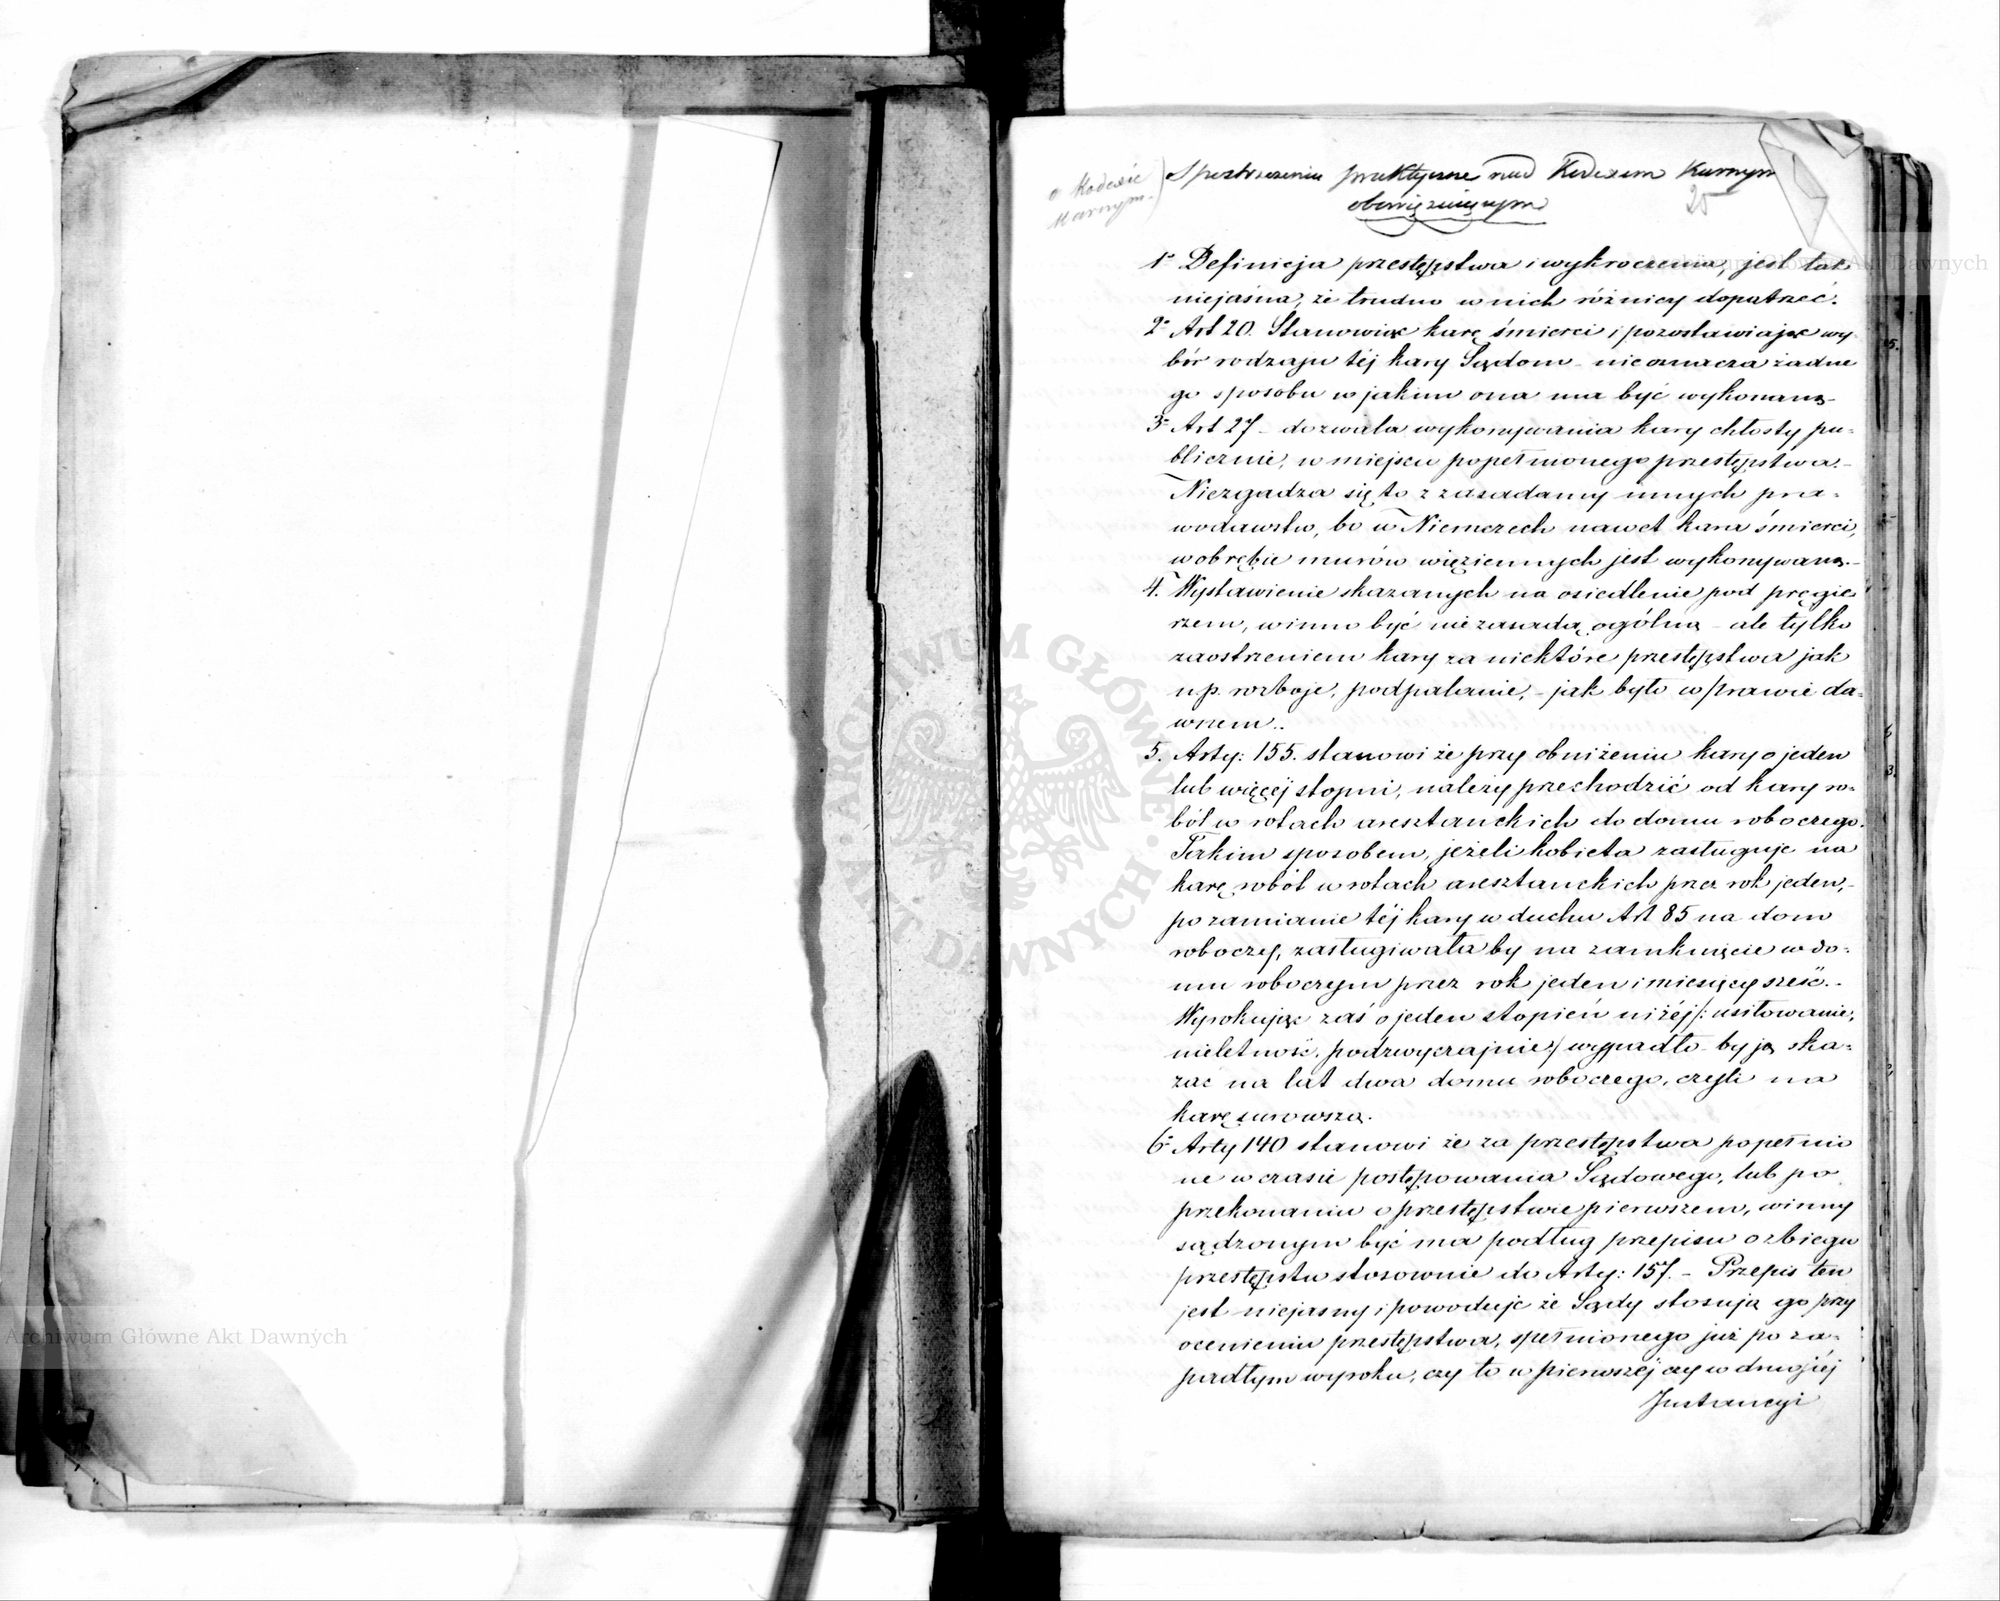 o Kodexie
Karnym.
Spostrzeżenia praktyczne nad Kodexem Karnym
obowięzującym
25
1º Definicja przestępstwa i wykroczenia, jest tak
niejaśna, że trudno w nich różnicy dopatrzeć.
2º Art 20. Stanowiąc karę śmierci i pozostawiając wy-
bór rodzaju téj kary Sądom - nie oznacza żadne
go sposobu w jakim ona ma być wykonaną -
3º Art 27 - dozwala wykonywania kary chłosty pu-
blicznie, w miejscu popełnionego przestępstwa. -
Niezgadza się to z zasadamy innych pra-
wodawstw, bo w Niemczech nawet kara śmierci,
w obrębie murów więziennych jest wykonywaną. -
4. Wystawienie skazanych na osiedlenie pod pręgie-
rzem, winno być nie zasadą ogólną - ale tylko
zaostrzeniem kary za niektóre przestępstwa jak
np. rozboje, podpalanie, - jak było w prawie da-
wnem..
5. Arty: 155. stanowi że przy obniżeniu kary o jeden
lub więcéj stopni, należy przechodzić od kary ro-
bót w rotach aresztanckich do domu roboczego.
Takim sposobem, jeżeli kobieta zasługuje na
karę robót w rotach aresztanckich przez rok jeden, -
po zamianie téj kary w duchu Art 85 na dom
roboczy, zasługiwała by na zamknięcie w do-
mu roboczym przez rok jeden i miesięcy sześć. -
Wyrokując zaś o jeden stopień niżéj /: usiłowanie,
nieletność, podzwyczajnie / wypadło - by ją ska-
zać na lat dwa domu roboczego, czyli na
karę surowszą.
6º Arty 140 stanowi że za przestępstwa popełnio
ne w czasie postępowania Sądowego, lub po
przekonaniu o przestępstwie pierwszem, winny
sądzonym być ma podług przepisu o zbiegu
przestępstw stosownie do Arty: 157. - Przepis ten
jest niejasny i powoduje że Sądy stosują go przy
ocenieniu przestępstwa, spełnionego już po za-
padłym wyroku, czy to w pierwszéj czy w drugiéj
Instancyi
Archiwum Główne Akt Dawnych
Archiwum Główne Akt Dawnych
ARCHIWUM GŁÓWNE AKT DAWNYCH